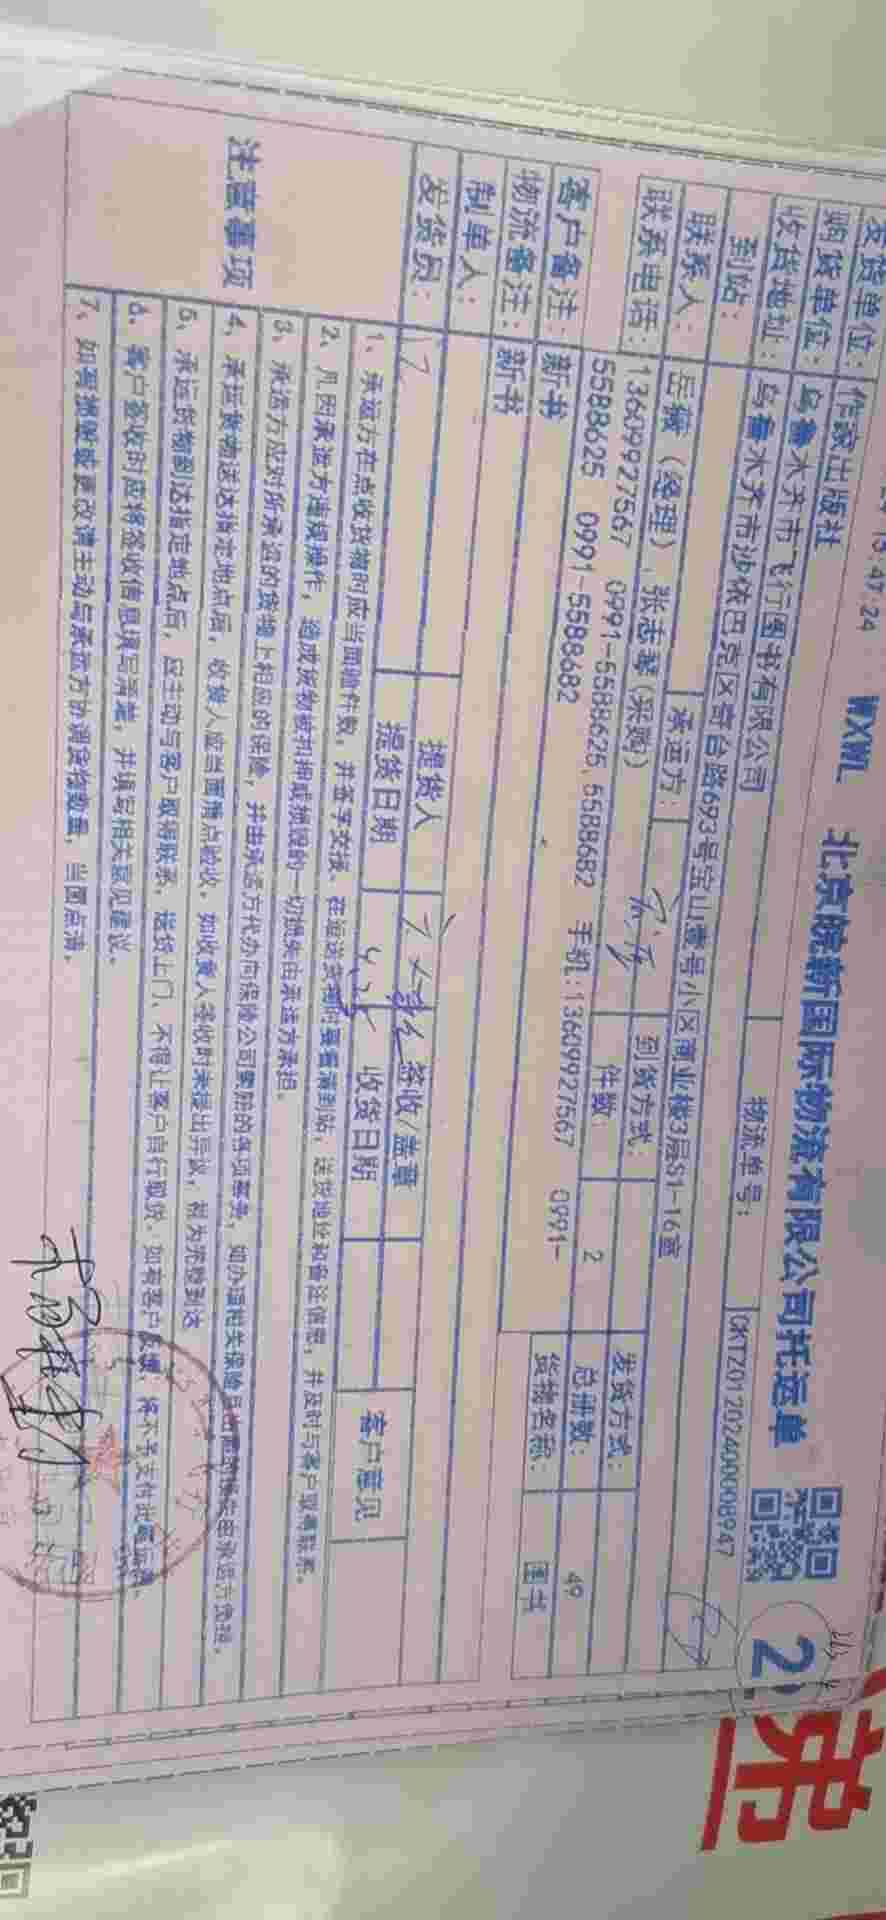 13:47:24 WXWL 北京皖新国际物流有限公司托运单
2
发货单位: 作家出版社 物流单号: CKTZ0120240008947
购货单位: 乌鲁木齐市飞行图书有限公司
收货地址: 乌鲁木齐市沙依巴克区奇台路693号宝山壹号小区商业楼3层S1-16室
到站: 承运方: 到货方式: 发货方式:
联系人: 岳薇（经理）,张志琴(采购) 件数: 2 总册数: 49
联系电话: 13609927567 0991-5588625,5588682 手机:13609927567 0991-
5588625 0991-5588682 货物名称: 图书
客户备注: 新书
物流备注: 新书
制单人: 提货人 签收/盖章 客户意见
发货员: 提货日期 收货日期
注意事项
1、承运方在点收货物时应当面验件数，并签字交接，在运送货物时要看清到站，送货地址和备注信息，并及时与客户取得联系。
2、凡因承运方违规操作，造成货物被扣押或损毁的一切损失由承运方承担。
3、承运方应对所承运的货物上相应的保险，并由承运方代办向保险公司索赔的各项事务，如办理相关保险
4、承运货物送达指定地点后，收货人应当面清点验收，如收货人签收时未提出异议，视为完整到达
5、承运货物到达指定地点后，应主动与客户取得联系，送货上门，不得让客户自行取货，如有客户 将不予支付此
6、客户签收时应将签收信息填写清楚，并填写相关意见建议。
7、如有损毁或更改请主动与承运方协调货物数量，当面点清。